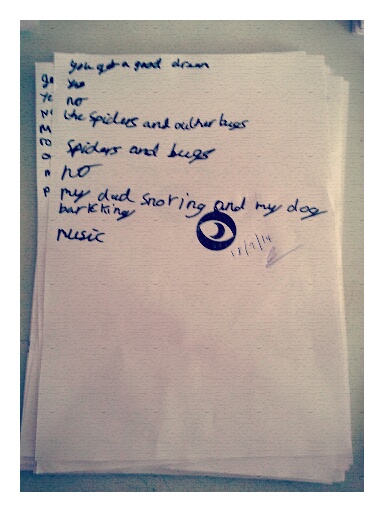 you get a good dream
yes
no
like spiders and outher bugs
spiders and bugs
no
my dad snoring and my dog
barkking
music